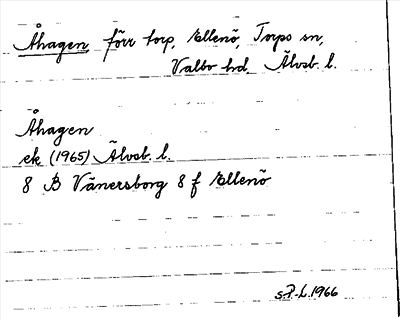 Åhagen, förr torp, Ellenö, Torps sn,
Valbo hd. Älvsb. l.
Åhagen
ek (1965) Älvsb. l.
8 B Vänersborg 8 f Ellenö
S.P-L. 1966